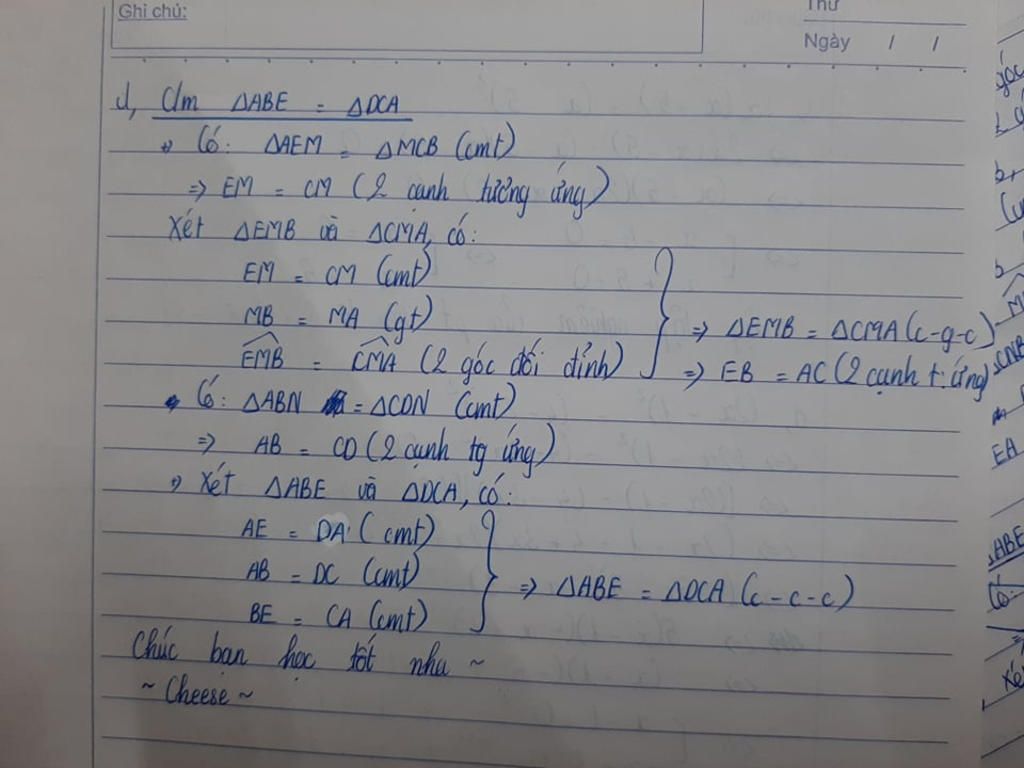 Ghi chú:
Thứ
Ngày / /
d, C/m ΔABE = ΔDCA
+ Có: ΔAEM = ΔMCB (cmt)
=> EM = CM (2 cạnh tương ứng)
Xét ΔEMB và ΔCMA, có:
EM = CM (cmt)
MB = MA (gt)
EMB = CMA (2 góc đối đỉnh)
=> ΔEMB = ΔCMA (c-g-c)
=> EB = AC (2 cạnh t. ứng)
Có: ΔABN = ΔCDN (cmt)
=> AB = CD (2 cạnh tg ứng)
+ Xét ΔABE và ΔDCA, có:
AE = DA (cmt)
AB = DC (cmt)
BE = CA (cmt)
=> ΔABE = ΔDCA (c-c-c)
Chúc bạn học tốt nha ~
~ Cheese ~
góc
b,
EA
ABE
Có:
Xé